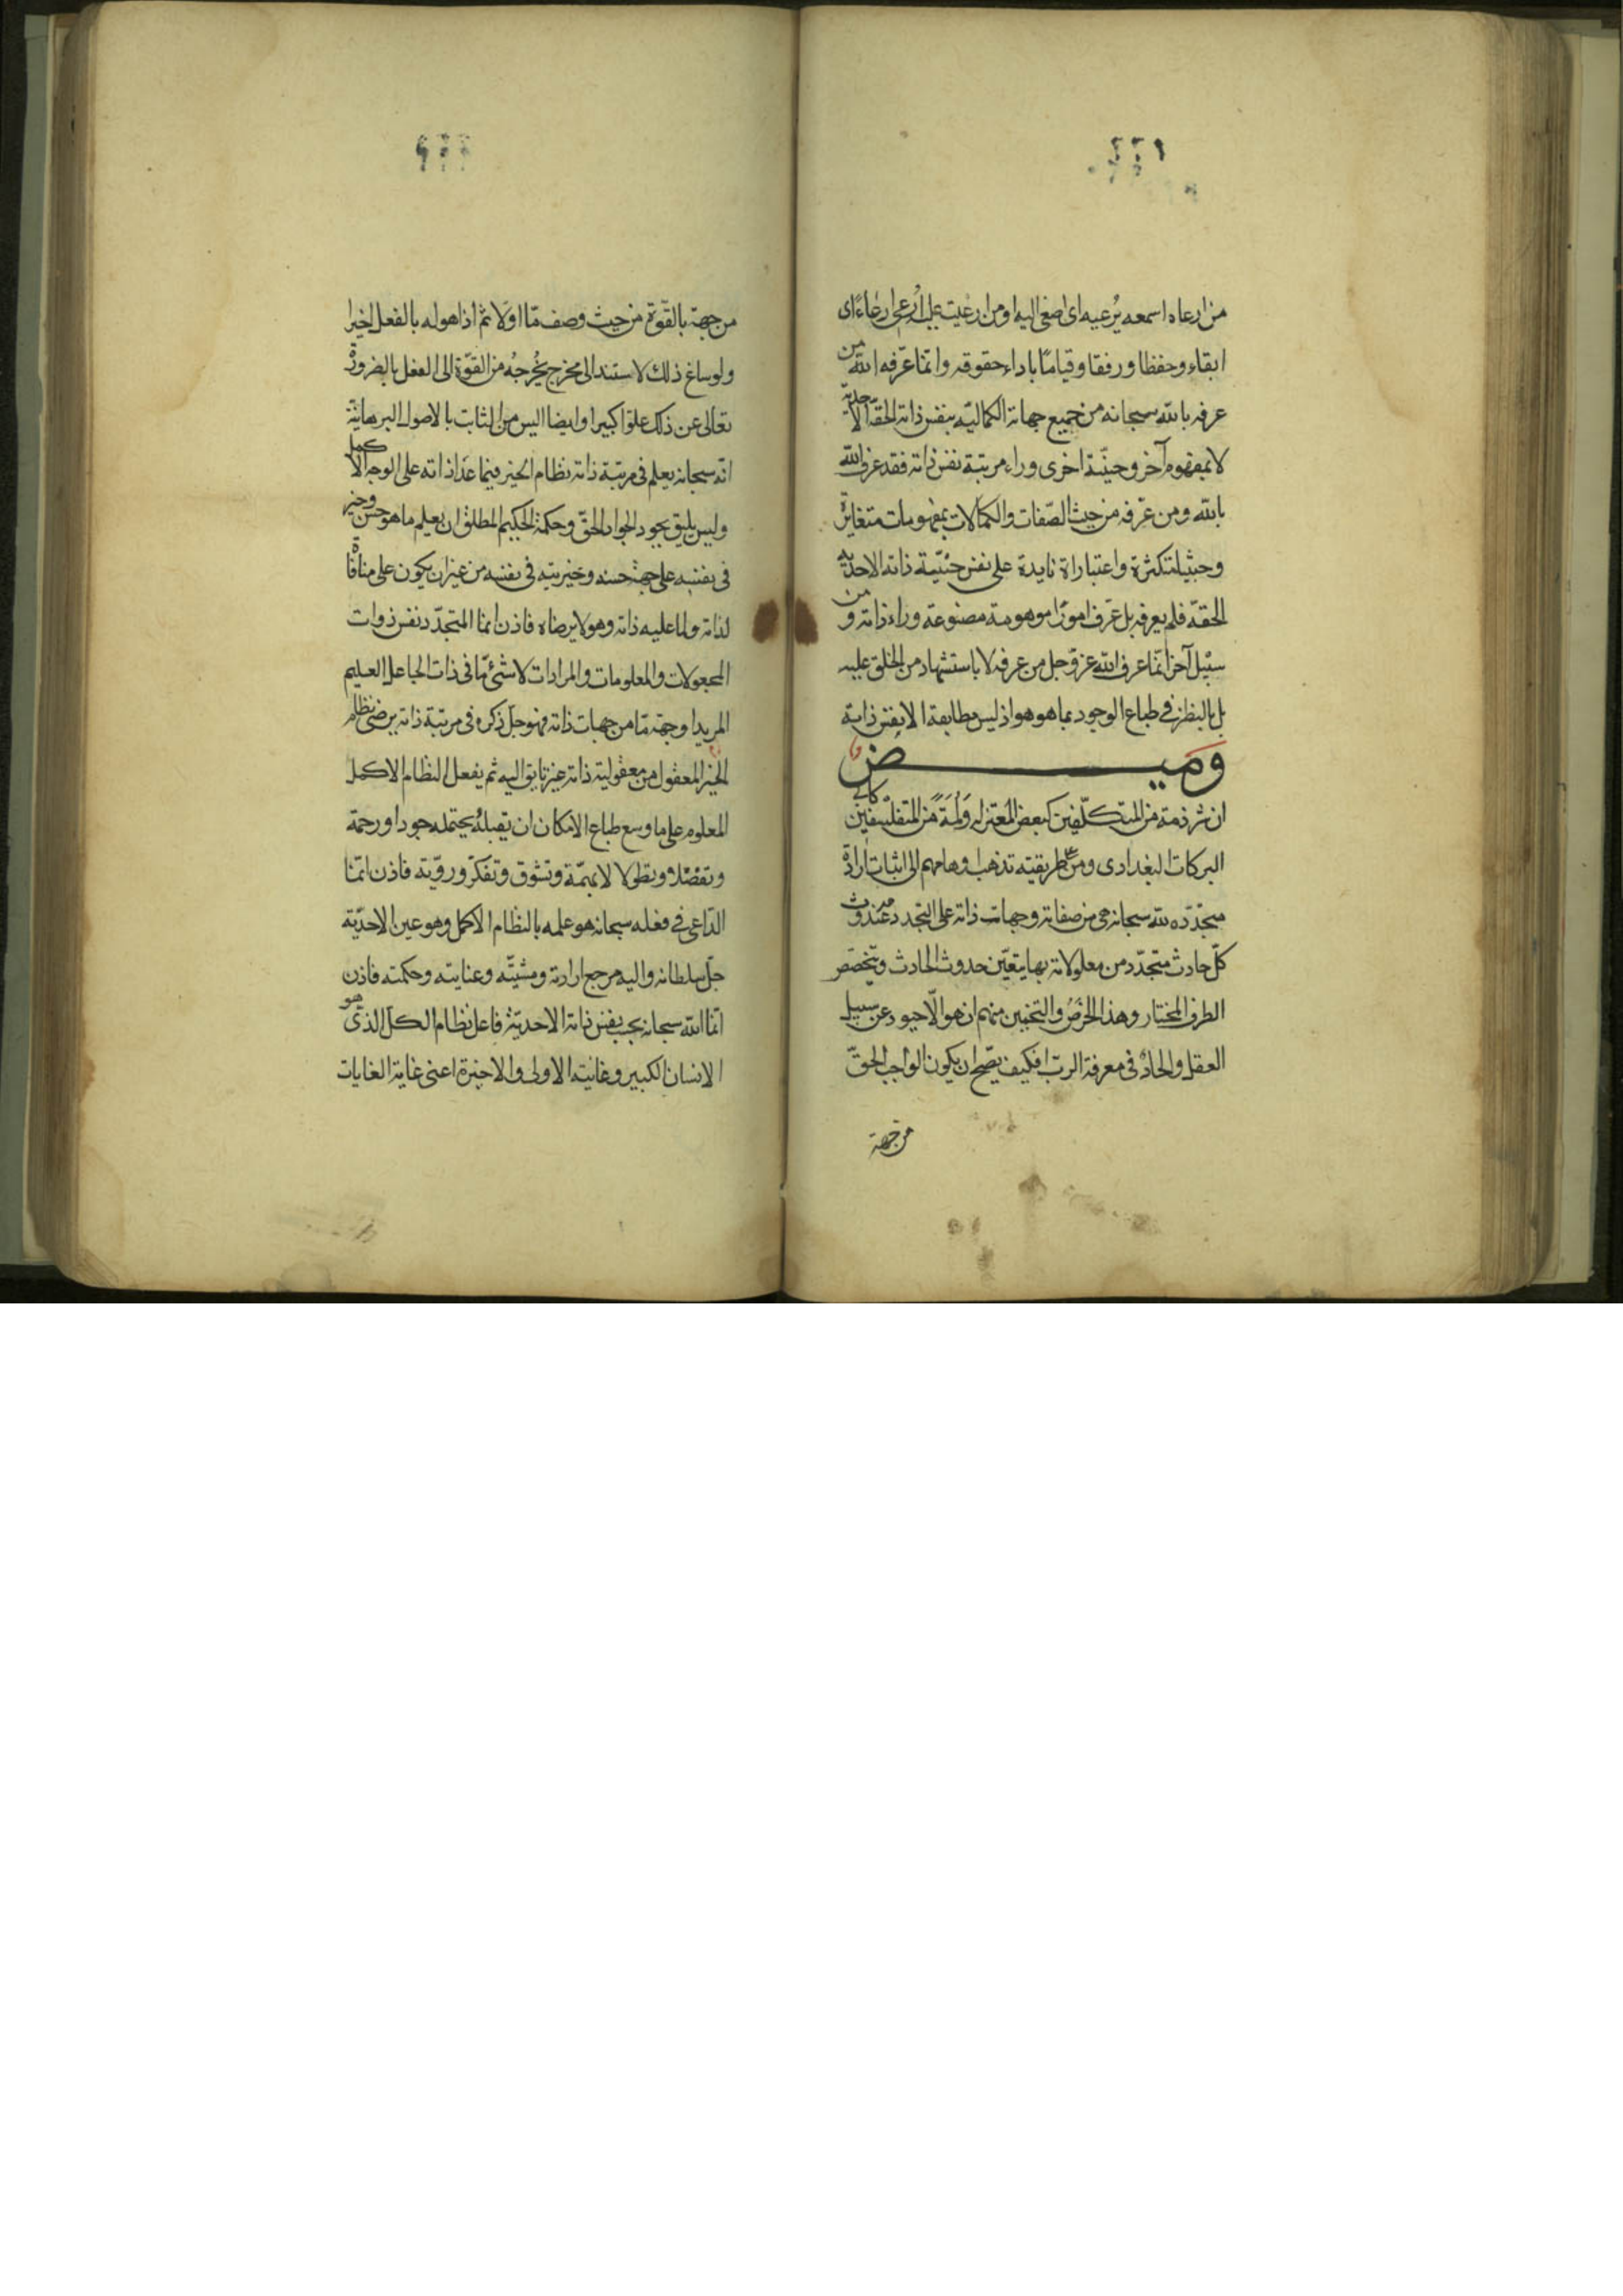 ٤٤١
من ارعاه اسمعه يُرعيه اى اصغى اليه او من ارعيت عليه اُرعى ارعاءً اى
ابقاء وحفظا ورفقا وقياما باداء حقوقه وانما عرّفه الله من
عرفه بالله سبحانه من جميع جهاته الكماليّه بنفس ذاته الحقّه الاحديّة
لا بمفهوم آخر وحيثيّة اخرى وراء مرتبة نفس ذاته فقد عرف الله
بالله ومن عرّفه من حيث الصّفات والكمالات بمفهومات متغايرة
وحيثيات متكثرة واعتبارات زايدة على نفس حيثيّة ذاته الاحديه
الحقه فلم يعرفه بل عرف امورًا موهومة مصنوعة وراء ذاته ومن
سبيل آخر انّما عرف الله عزّ وجل من عرفه لا باستشهاد من الخلق عليه
بل بالنظر فى طباع الوجود بما هو هو اذ ليس مطابقة الا بنفس ذاته
وميض
ان شرذمة من المتكلّفين كبعض المعتزله ولُمَةً من المتفلسفين كابى
البركات البغدادى ومن على طريقته تذهب اوهامهم الى اثبات ارادة
متجدّده لله سبحانه هى من صفاته وجهات ذاته على التجدد عند حدوث
كلّ حادث متجدّد من معلولاته بها يتعيّن حدوث الحادث ويتخصّص
الطرف المختار وهذا الخرص والتخمين منهم ان هو الّا حيود عن سبيل
العقل والحاد فى معرفة الربّ افكيف يصّح ان يكون الواجب الحقّ
من جهة
من جهة بالقوّة من حيث وصف مّا اوّلا ثم اذا هو له بالفعل اخيرا
ولو ساغ ذلك لاستند الى مخرج يُخرجُه من القوّة الى الفعل بالضرورة
تعالى عن ذلك علوّا كبيرا وايضا اليس من الثابت بالاصول البرهانيّة
انّه سبحانه يعلم فى مرتبة ذاته نظام الخير فيما عدا ذاته على الوجه الاكمل
وليس يليق بجود الجواد الحقّ وحكمة الحكيم المطلق ان يعلم ما هو حسن وخير
فى نفسه على جهة حسنه وخيريته فى نفسه من غير ان يكون على منافاة
لذاته ولما عليه ذاته وهو لا يرضاه فاذن انما المتجدّد نفس ذوات
المجعولات والمعلومات والمرادات لا شئ مّا فى ذات الجاعل العليم
المريد او جهة مّا من جهات ذاته فهو جلّ ذكره فى مرتبة ذاته يرضى نظام
الخير المعقول من معقولية ذاته غير تايق اليه ثم يفعل النظام الاكمل
المعلوم على ما وسع طباع الامكان ان يقبلُه يحتمله جودا ورحمة
وتفضّلا وتطولا لا بهمّة وتشوق وتفكّر ورويّة فاذن انّما
الدّاعى فى فعله سبحانه هو علمه بالنظام الاكمل وهو عين الاحديّة
جلّ سلطانه واليه مرجع ارادته ومشيّته وعنايته وحكمته فاذن
انّما الله سبحانه يجب بنفس ذاته الاحديّة فاعل نظام الكلّ الذى هو
الانسان الكبير وغايته الاولى والاخيرة اعنى غاية الغايات